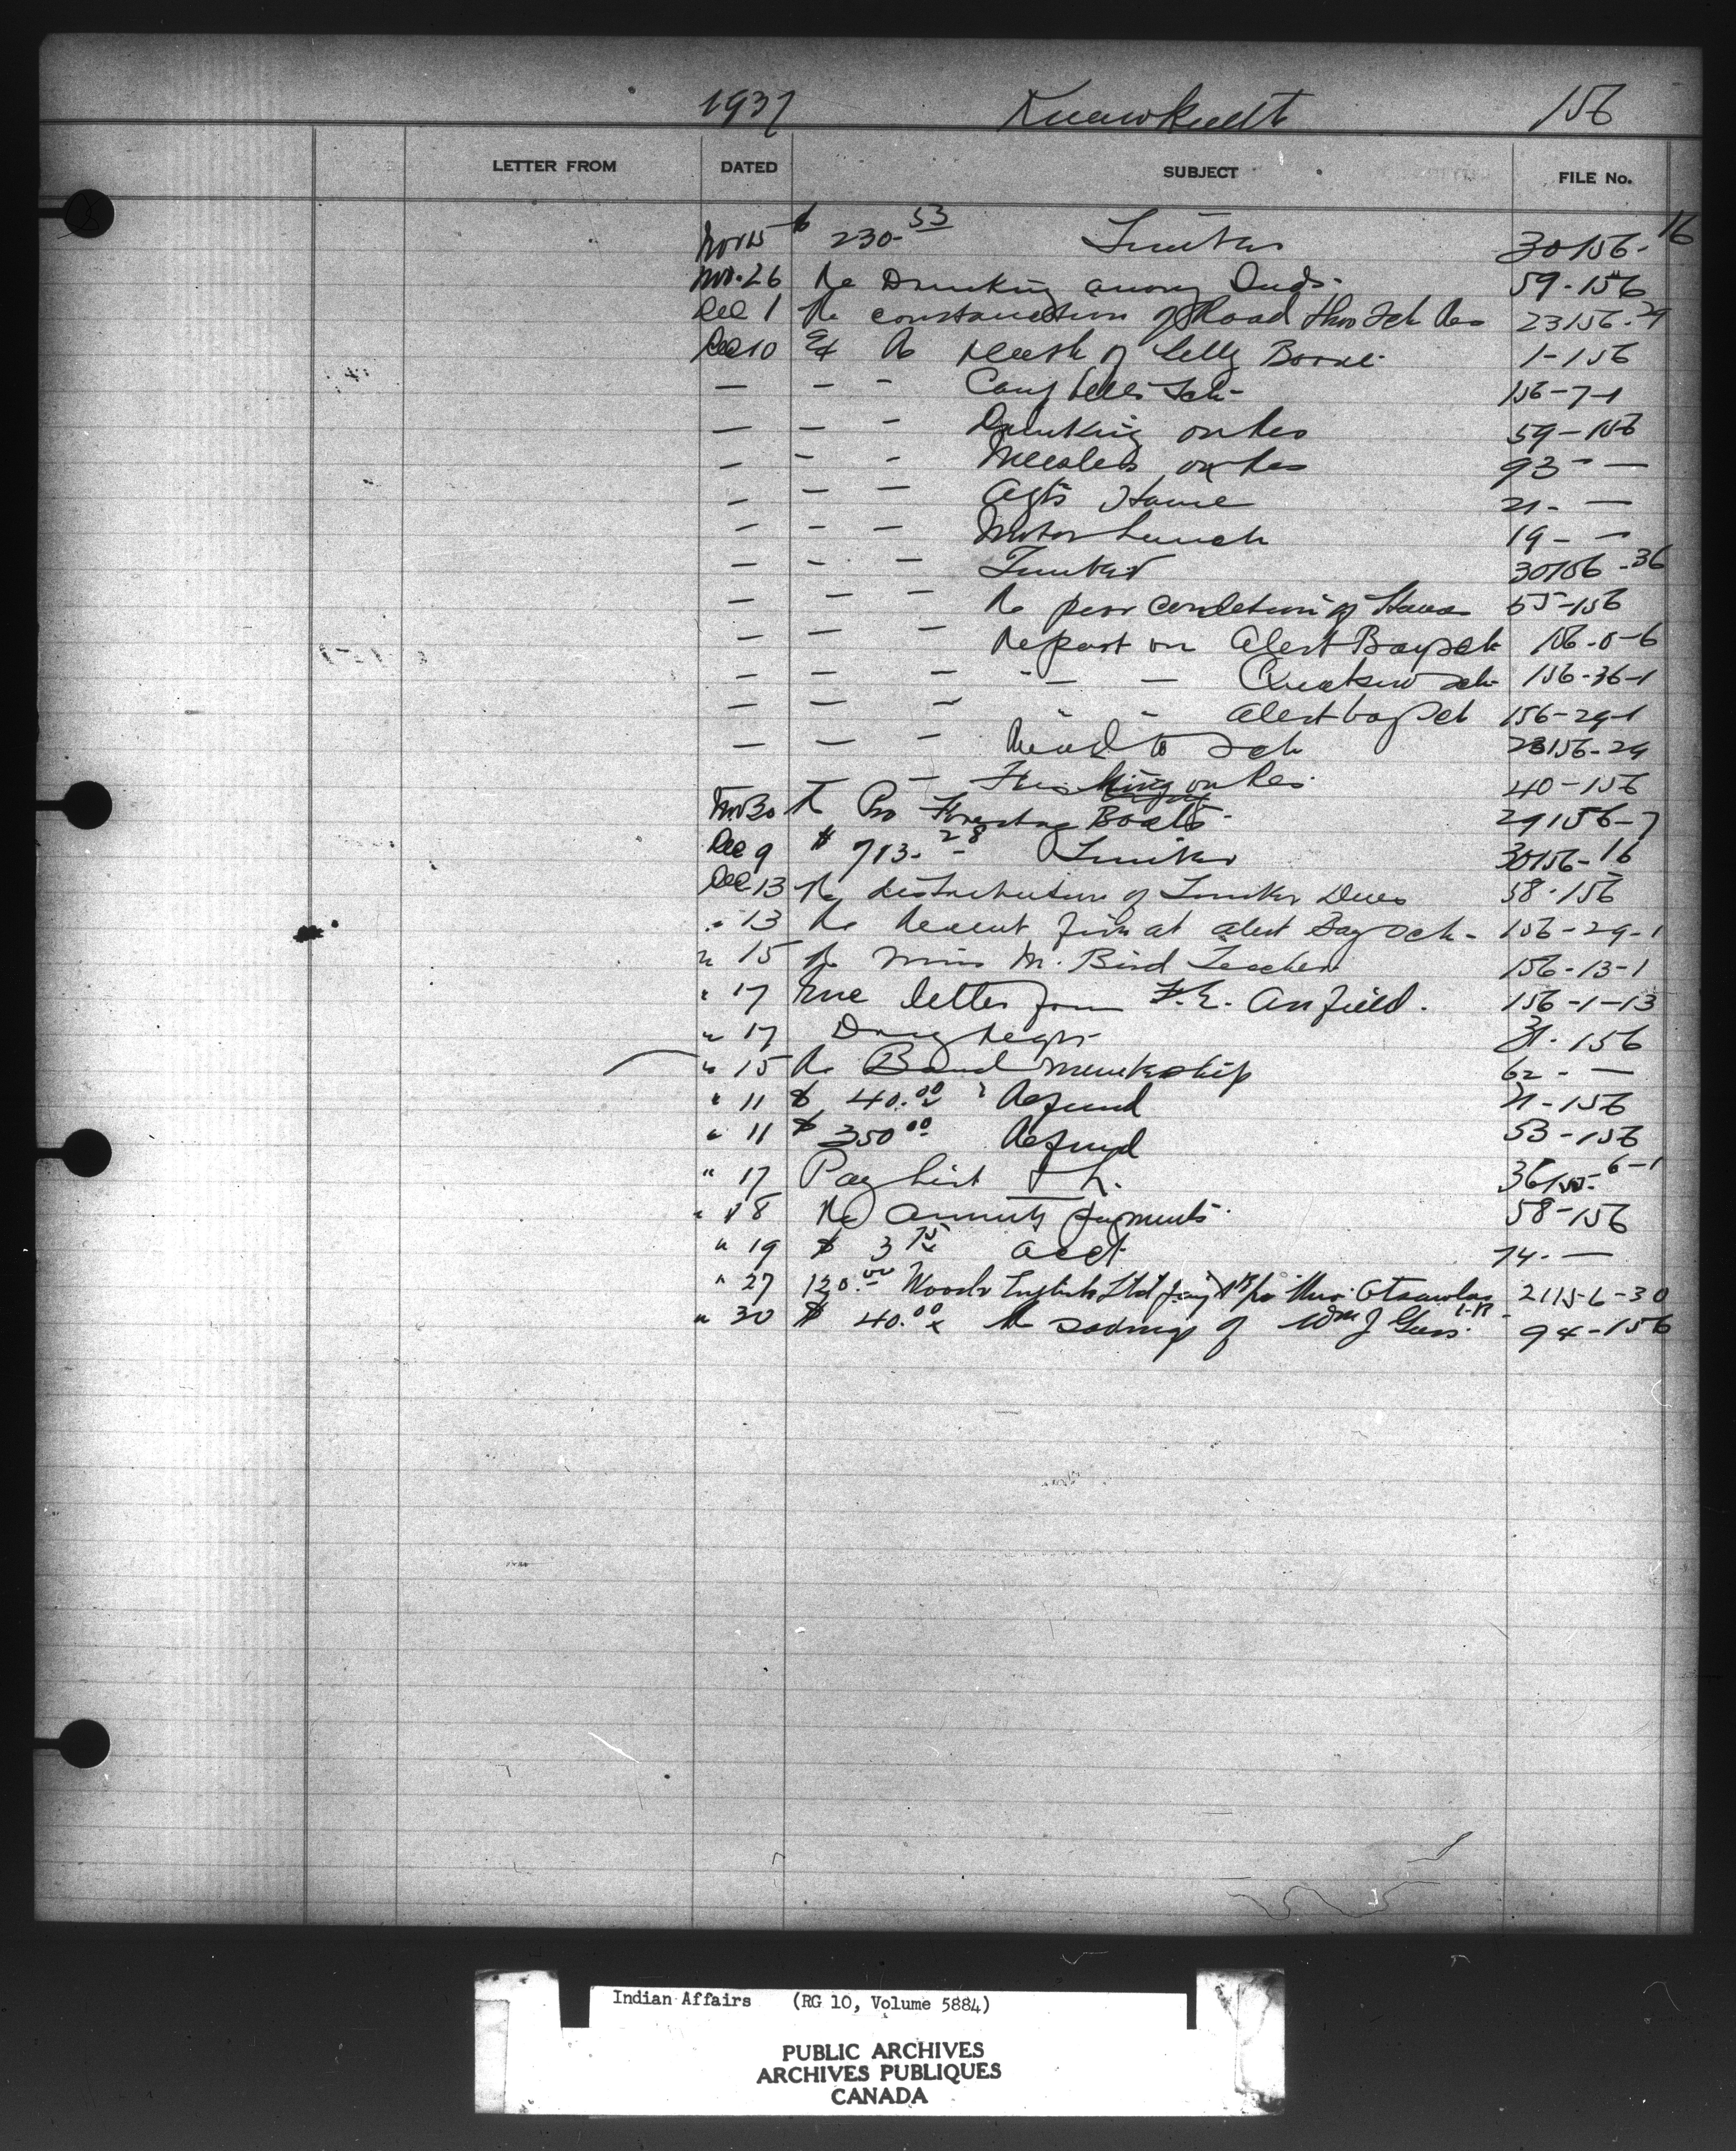 1937 156
LETTER FROM DATED SUBJECT FILE No.
Nov 15 $ 230.53 Timber 30156-16
Nov. 26 Re Drinking among Inds. 59-156
Dec 1 Re construction of Road thro Sch Res 23156-29
Dec 10 Ex Re Death of Boone 1-156
— — — Campbell Sch- 156-7-1
— — — Drinking on Res 59-156
— — — Measles on Res 93 - —
— — — Agts House 21- —
— — — Motor Launch 19- —
— — — Timber 30156-36
— — — Re poor condition of House 55-156
— — — Report on Alert Bay Sch 156-0-6
— — — " — — Sch 156-36-1
— — — " " Alert Bay Sch 156-29-1
— — — Road to Sch 23156-29
— — on Res. 40-156
Nov 30 Re Boats 29156-7
Dec 9 $ 713.28 Timber 30156-16
Dec 13 Re distribution of Timber Dues 58-156
" 13 Re Recent fire at Alert Bay Sch- 156-29-1
" 15 Re Miss M. Bird Teacher 156-13-1
" 17 letter from F.E. Anfield. 156-1-13
" 17 Drug Reqn 31-156
" 15 Re Band membership 62 - —
" 11 $ 40.00 Refund 21-156
" 11 $ 350.00 Refund 53-156
" 17 Pay List T L. 6-1
" 18 Re Annuity payments. 58-156
" 19 $ 3.75 acct 74- —
" 27 120.00 Woods English Ltd 2115-6-30
" 30 $ 40.00 Re savings of Wm J 94-156
Indian Affairs (RG 10, Volume 5884)
PUBLIC ARCHIVES
ARCHIVES PUBLIQUES
CANADA